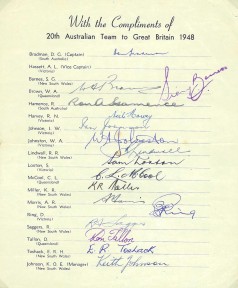 With the Compliments of
20th Australian Team to Great Britain 1948
Bradman, D. G. (Captain)
(South Australia)
Hassett, A. L. (Vice Captain)
(Victoria)
Barnes, S. G.
(New South Wales)
Brown, W. A.
(Queensland)
Hamence, R.
(South Australia)
Ron A Hamence
Harvey, R. N.
(Victoria)
Johnson, I. W.
(Victoria)
Johnston, W. A.
(Victoria)
W A Johnston
Lindwall, R. R.
(New South Wales)
Loxton, S.
(Victoria)
Sam Loxton
McCool, C. L.
(Queensland)
Miller, K. R.
(New South Wales)
KR Miller
Morris, A. R.
(New South Wales)
Ring, D.
(Victoria)
D Ring
Saggers, R.
(New South Wales)
Tallon, D.
(Queensland)
Don Tallon
Toshack, E. R. H.
(New South Wales)
E. R. Toshack
Johnson, K. O. E. (Manager)
(New South Wales)
Keith Johnson